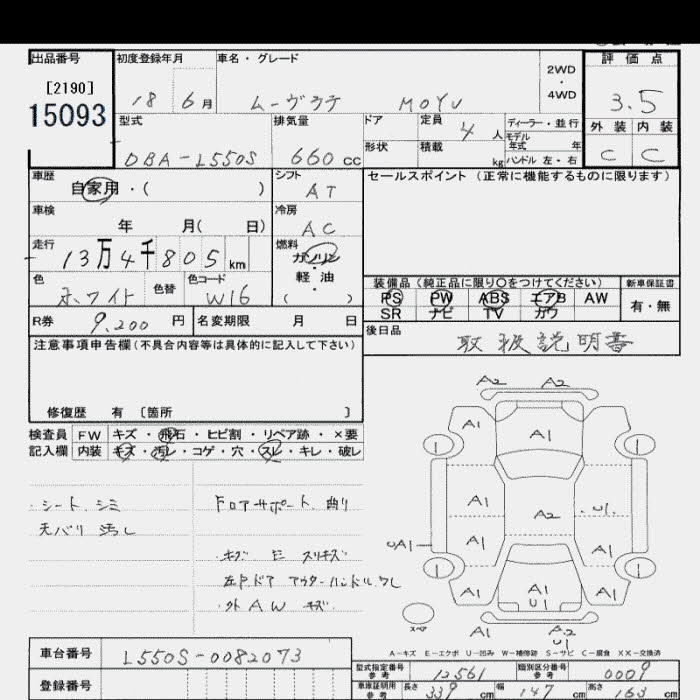 出品番号
[2190]
15093
初度登録年月
18 6月
車名・グレード
ムーヴラテ MOYU
2WD
・
4WD
評価点
3.5
外装 内装
C C
型式
DBA-L550S
排気量
660 cc
ドア
定員
4 人
形状
積載
kg
ディーラー・並行
モデル
年式 年
ハンドル 左・右
車歴
自家用・( )
シフト
AT
セールスポイント (正常に機能するものに限ります)
車検
年 月( 日)
冷房
AC
走行
13万4千805 km
燃料
ガソリン
・
軽油
・
( )
色
ホワイト
色替
色コード
W16
装備品 (純正品に限り○をつけてください)
PS PW ABS エアB AW
SR ナビ TV カワ
新車保証書
有・無
R券 9,200 円
名変期限 月 日
後日品
取扱説明書
注意事項申告欄 (不具合内容等は具体的に記入して下さい)
修復歴 有 〔箇所 〕
検査員
記入欄
FW キズ・飛石・ヒビ割・リペア跡・×要
内装 キズ・汚レ・コゲ・穴・スレ・キレ・破レ
シート シミ
天バリ 汚レ
ドロアサポート 曲り
キズ E スリキズ
左Fドア アウターハンドルワレ
外 AW キズ
A2 A2
A1 A1
1 1
A1 A2 U1
UA1 A1 A1
1 1
A1
U1
A1 A2
U1
スペア
A-キズ E-エクボ U-凹み W-補修跡 S-サビ C-腐食 XX-交換済
車台番号
L550S-0082073
登録番号
型式指定番号
参考
12561
類別区分番号
参考
0009
車庫証明用
参考
長さ 339 cm
幅 147 cm
高さ 163 cm